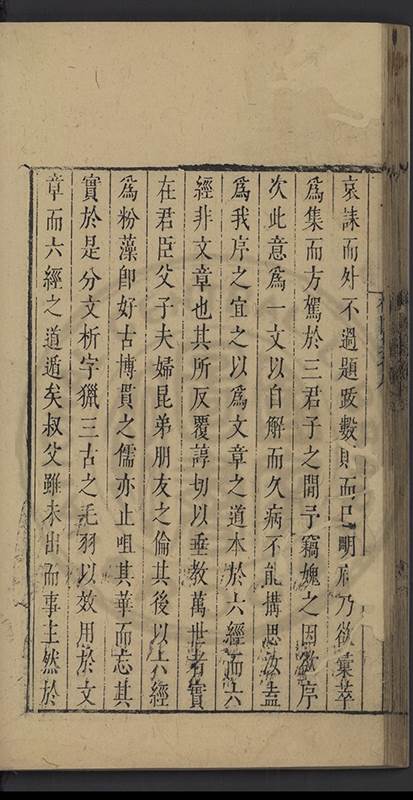 哀誄而外不過題跋數則而已明府乃欲彙萃
爲集而方駕於三君子之間予竊媿之因欲序
次此意爲一文以自解而久病不能搆思汝盍
爲我序之宜之以爲文章之道本於六經而六
經非文章也其所反覆諄切以垂教萬世者實
在君臣父子夫婦昆弟朋友之倫其後以六經
爲粉藻卽好古博貫之儒亦止咀其華而忘其
實於是分文析字獵三古之毛羽以效用於文
章而六經之道遁矣叔父雖未出而事主然於